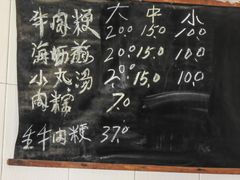 牛肉粳 大 中 小
200 150 100
海蛎煎 200 15.0 100
小丸汤 200 15.0 100
肉粽 7.0
生牛肉粳 37.0